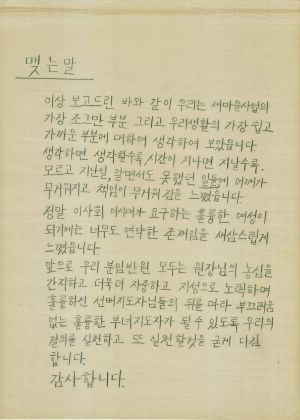 맺는말
이상 보고드린 바와 같이 우리는 새마을사업의
가장 조그만 부분 그리고 우리생활의 가장 쉽고
가까운 부분에 대하여 생각하여 보았읍니다
생각하면 생각할수록, 시간이 지나면 지날수록,
모르고 지난일, 알면서도 못했던 일들에 어깨가
무거워지고 책임이 무거워짐을 느꼈읍니다.
정말 이사회 요구하는 훌륭한 여성이
되기에는 너무도 연약한 존재임을 새삼스럽게
느꼈읍니다.
앞으로 우리 분임반원 모두는 원장님의
간직하고 더욱더 자중하고 지성으로 노력하며
훌륭하신 선배지도자님들의 뒤를 따라 부끄러움
없는 훌륭한 부녀지도자가 될 수 있도록 우리의
결의를 실천하고 또 실천할것을 굳게 다짐
합니다.
감사합니다.